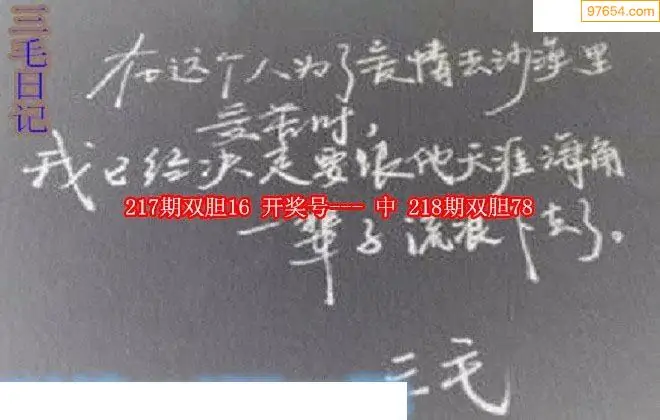 97654.com
三毛日记
在这个人为了爱情去沙漠里
受苦时，
我已经决定要跟他天涯海角
217期双胆16 开奖号--- 中 218期双胆78
一辈子流浪下去了。
三毛